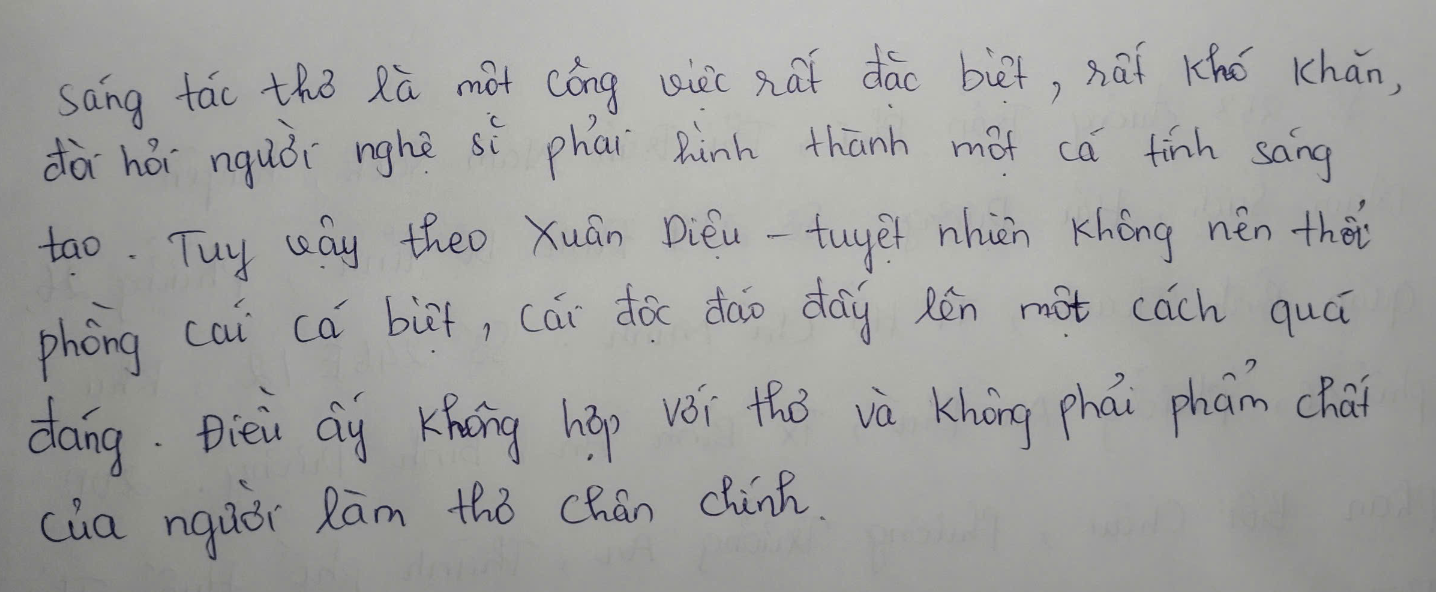 Sáng tác thơ là một công việc rất đặc biệt, rất khó khăn,
đòi hỏi người nghệ sĩ phải hình thành một cá tính sáng
tạo. Tuy vậy theo Xuân Diệu - tuyệt nhiên không nên thổi
phồng cái cá biệt, cái độc đáo đấy lên một cách quá
đáng. Điều ấy không hợp với thơ và không phải phẩm chất
của người làm thơ chân chính.